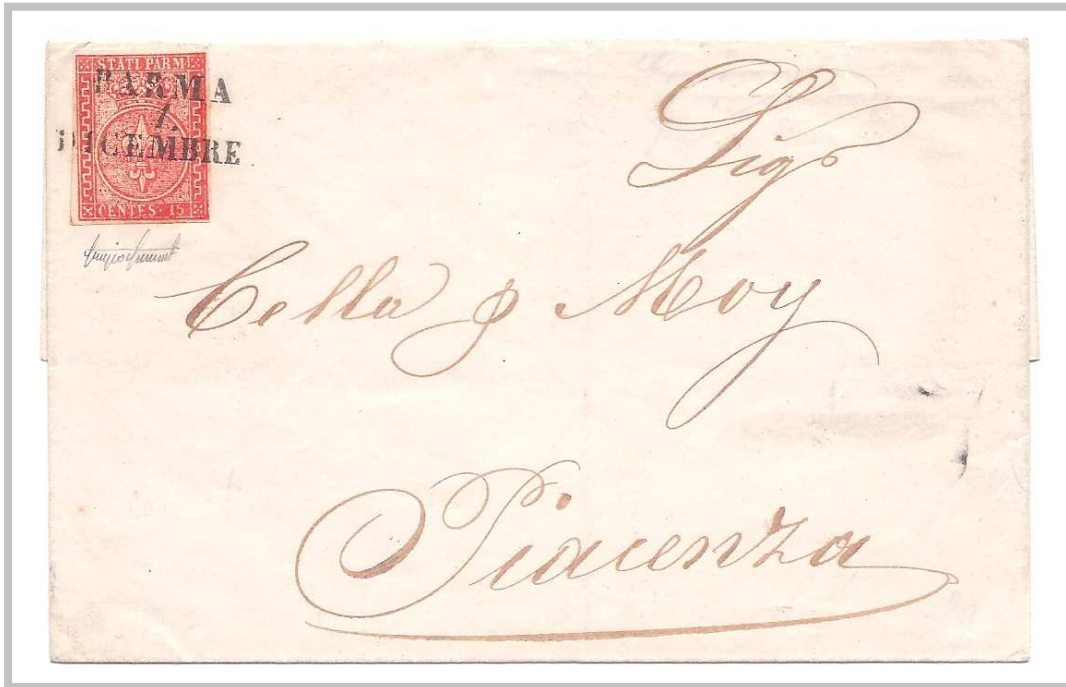 STATI PARM:
PARMA
1.
DICEMBRE
CENTES. 15
Sigr
Cella & Moy
Piacenza